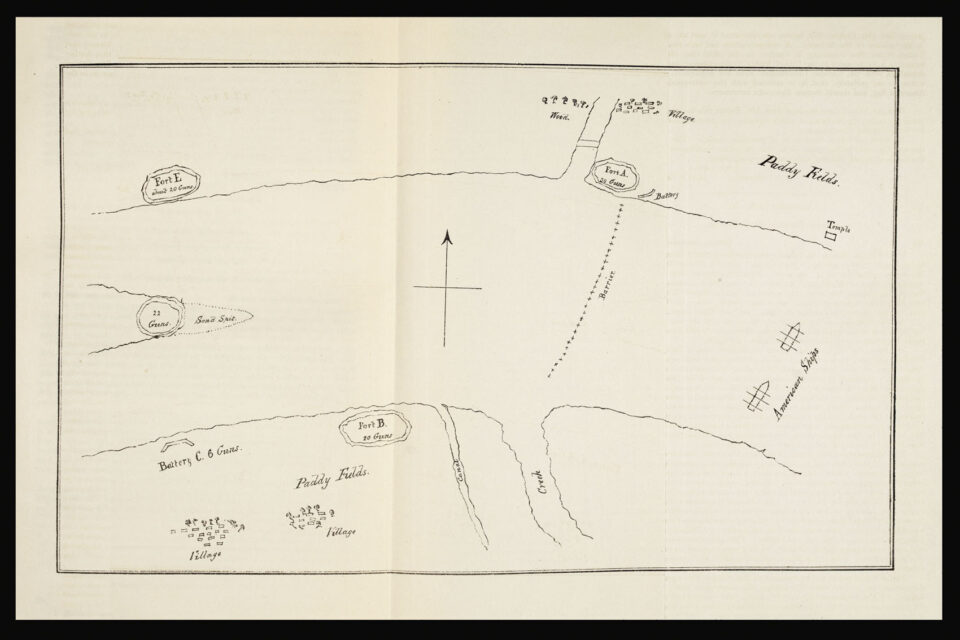 Wood.
Village
Fort E
about 20 Guns.
Fort A.
20 Guns
Battery
Paddy Fields.
Temple
Barrier.
22
Guns.
Sand Spit.
American Ships
Fort B.
20 Guns
Battery C. 6 Guns.
Paddy Fields.
Canal
Creek
Village
Village